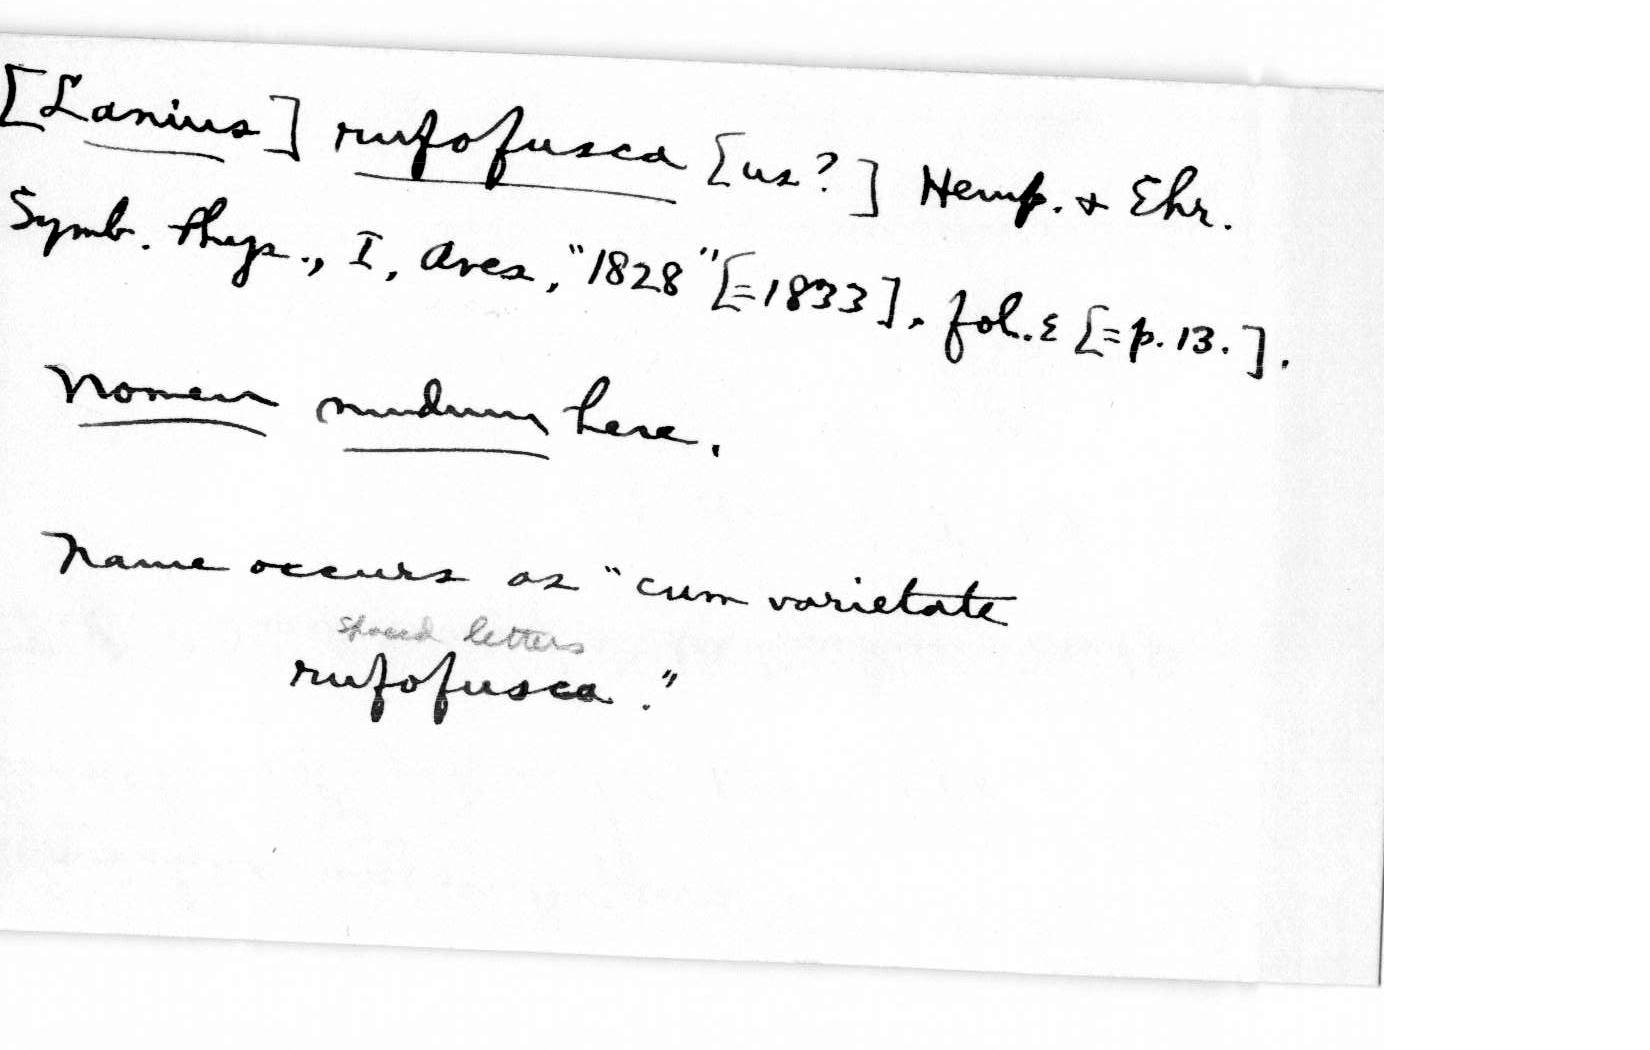 [Lanius] rufofusca [us?] Hemp. & Ehr.
Symb. Phys., I, Aves, "1828" [=1833], fol. ε [=p. 13.].
Nomen nudum here.
Name occurs as "cum varietate
spaced letters
rufofusca."